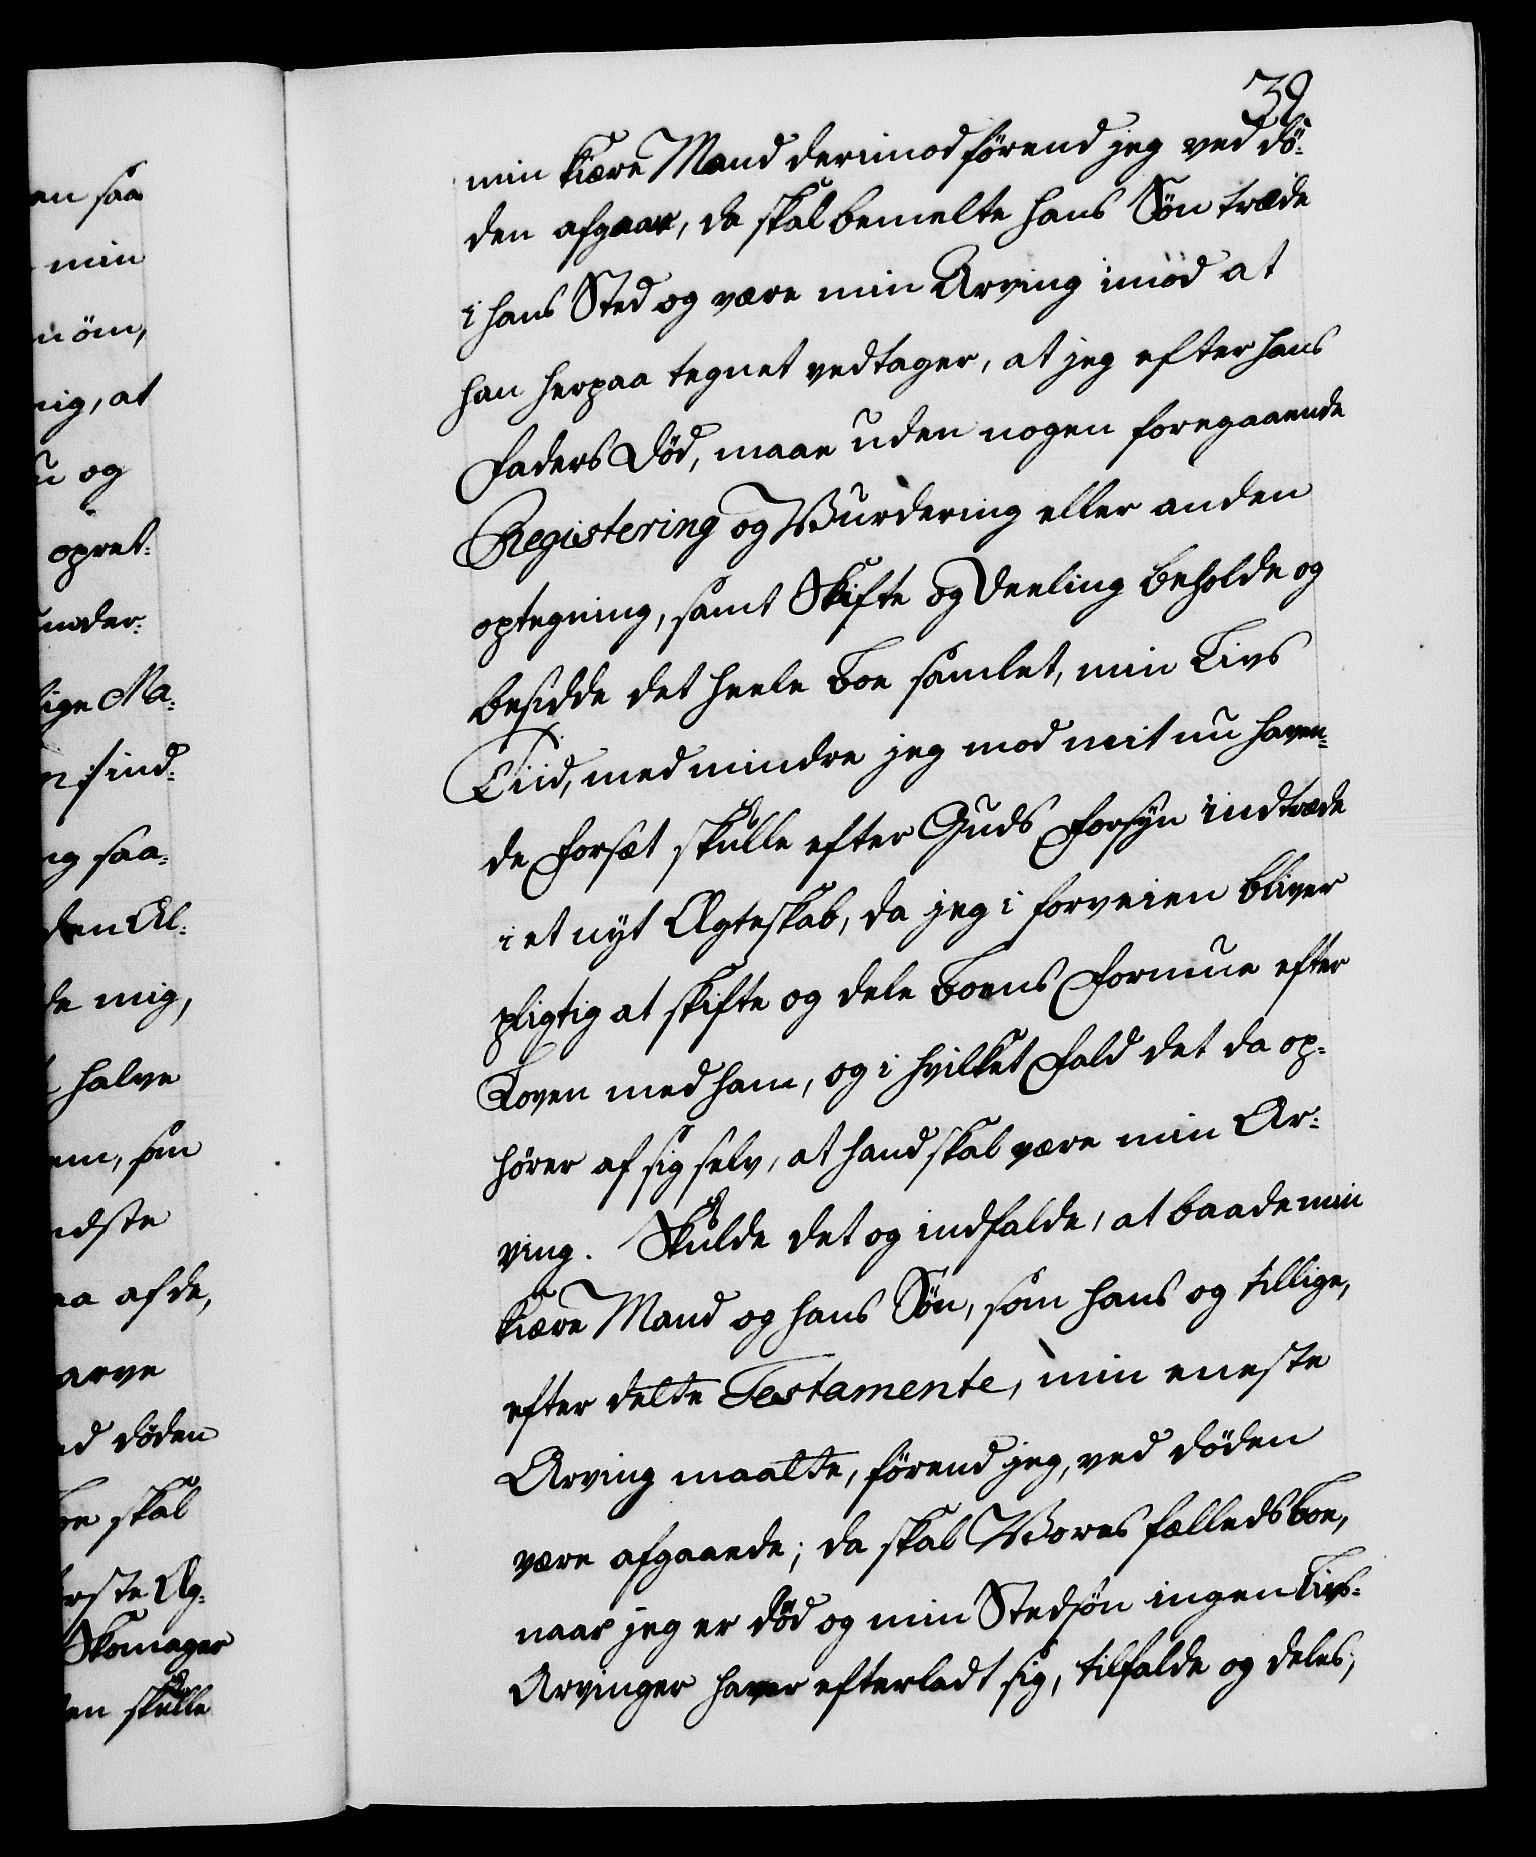 39.
min kiære Mand derimod förend jeg ved dö-
den afgaar, da skal bemelte hans Sön træde
i hans Sted og være min Arving imod at
han herpaa tegnet vedtager, at jeg efter hans
Faders Död, maae uden nogen foregaaende
Registering og Wurdering eller anden
optegning, samt Skifte og Deeling beholde og
besidde det heele Boe samlet, min Livs
Tiid, med mindre jeg mod mit nu haven-
de Forsæt skulle efter Guds Forsyn indtræde
i et nyt Ægteskab, da jeg i forveien bliver
pligtig at skifte og dele Boens Formue efter
Loven med ham, og i hvilket Fald det da op-
hörer af sig selv, at hand skal være min Ar-
ving. Skulde det og indfalde, at baade min
kiære Mand og hans Sön, som hans og tillige,
efter dette Testamente, min eneste
Arving maatte, förend jeg, ved döden
være afgaaede; da skal Wores fælleds Boe,
naar jeg er död og min Stedsön ingen Livs-
Arvinger haver efterladt sig, tilfalde og deles,
en saa
min
öm,
mig, at
og
opret-
under-
lige Ma-
find-
saa-
den Al-
de mig,
halve
em, som
idste
aa afde,
arve
ved döden
Boe skal
örste Æg-
Skomager
en skulle